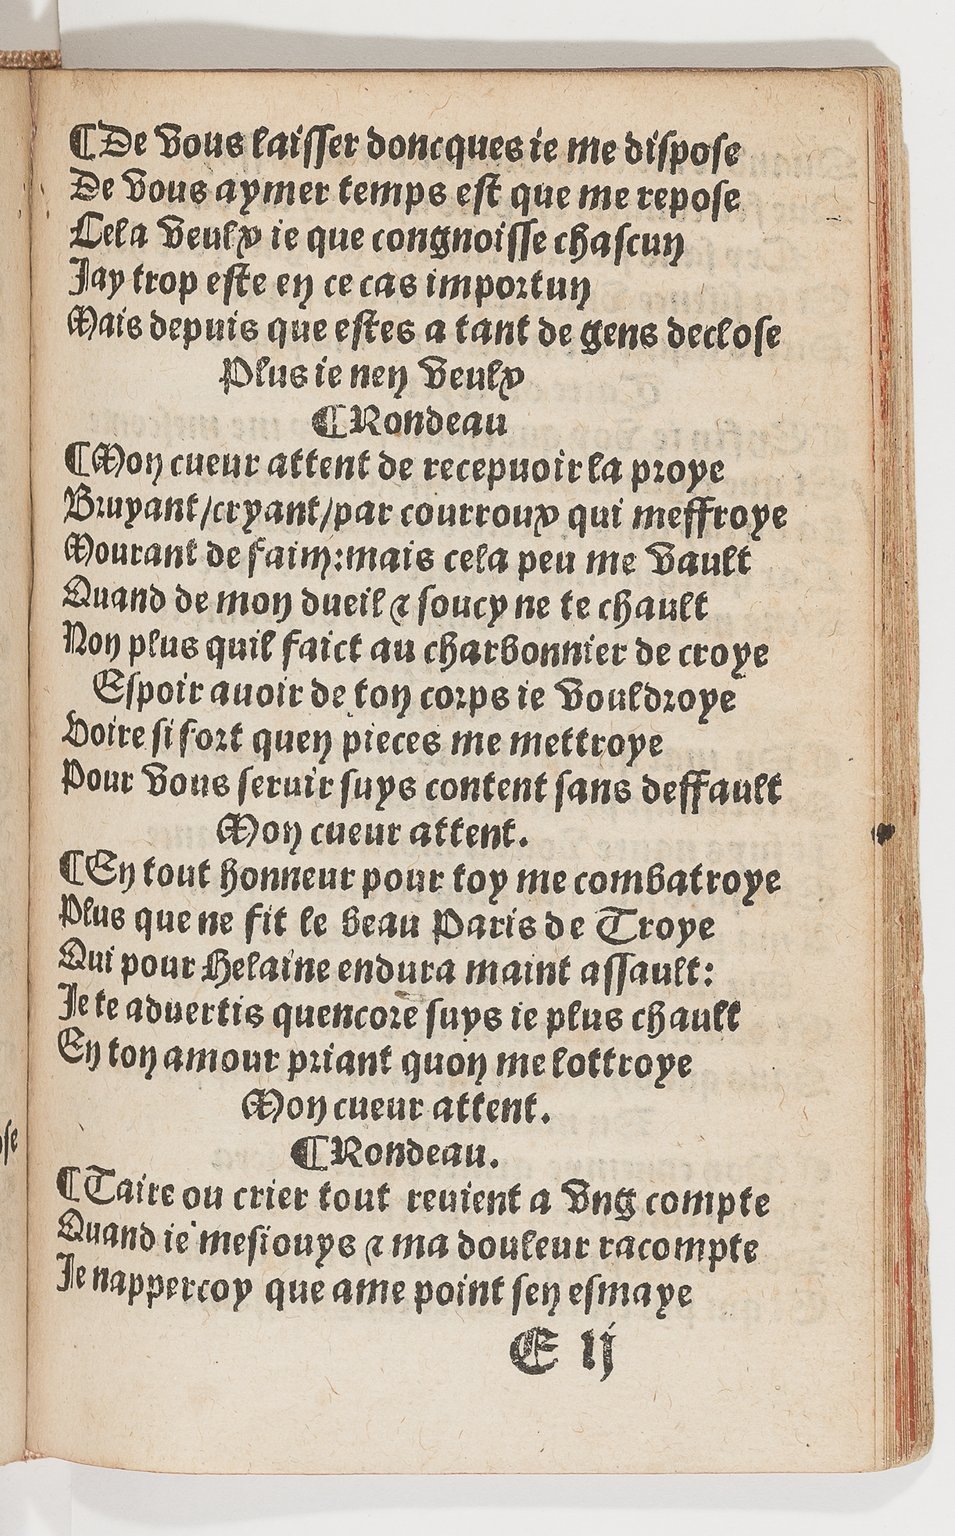 ¶De vous laisser doncques ie me dispose
De vous aymer temps est que me repose
Cela veulx ie que congnoisse chascun
Jay trop este en ce cas importun
Mais depuis que estes a tant de gens declose
Plus ie nen veulx
¶Rondeau
¶Mon cueur attent de recepuoir la proye
Bruyant/cryant/par courroux qui meffroye
Mourant de faim:mais cela peu me vault
Quand de mon dueil & soucy ne te chault
Non plus quil faict au charbonnier de croye
Espoir auoir de ton corps ie vouldroye
Voire si fort quen pieces me mettroye
Pour vous seruir suys content sans deffault
Mon cueur attent.
¶En tout honneur pour toy me combatroye
Plus que ne fit le beau Paris de Troye
Qui pour Helaine endura maint assault:
Je te aduertis quencore suys ie plus chault
En ton amour priant quon me lottroye
Mon cueur attent.
¶Rondeau.
¶Taire ou crier tout reuient a vng compte
Quand ie mesiouys & ma douleur racompte
Je nappercoy que ame point sen esmaye
E ij